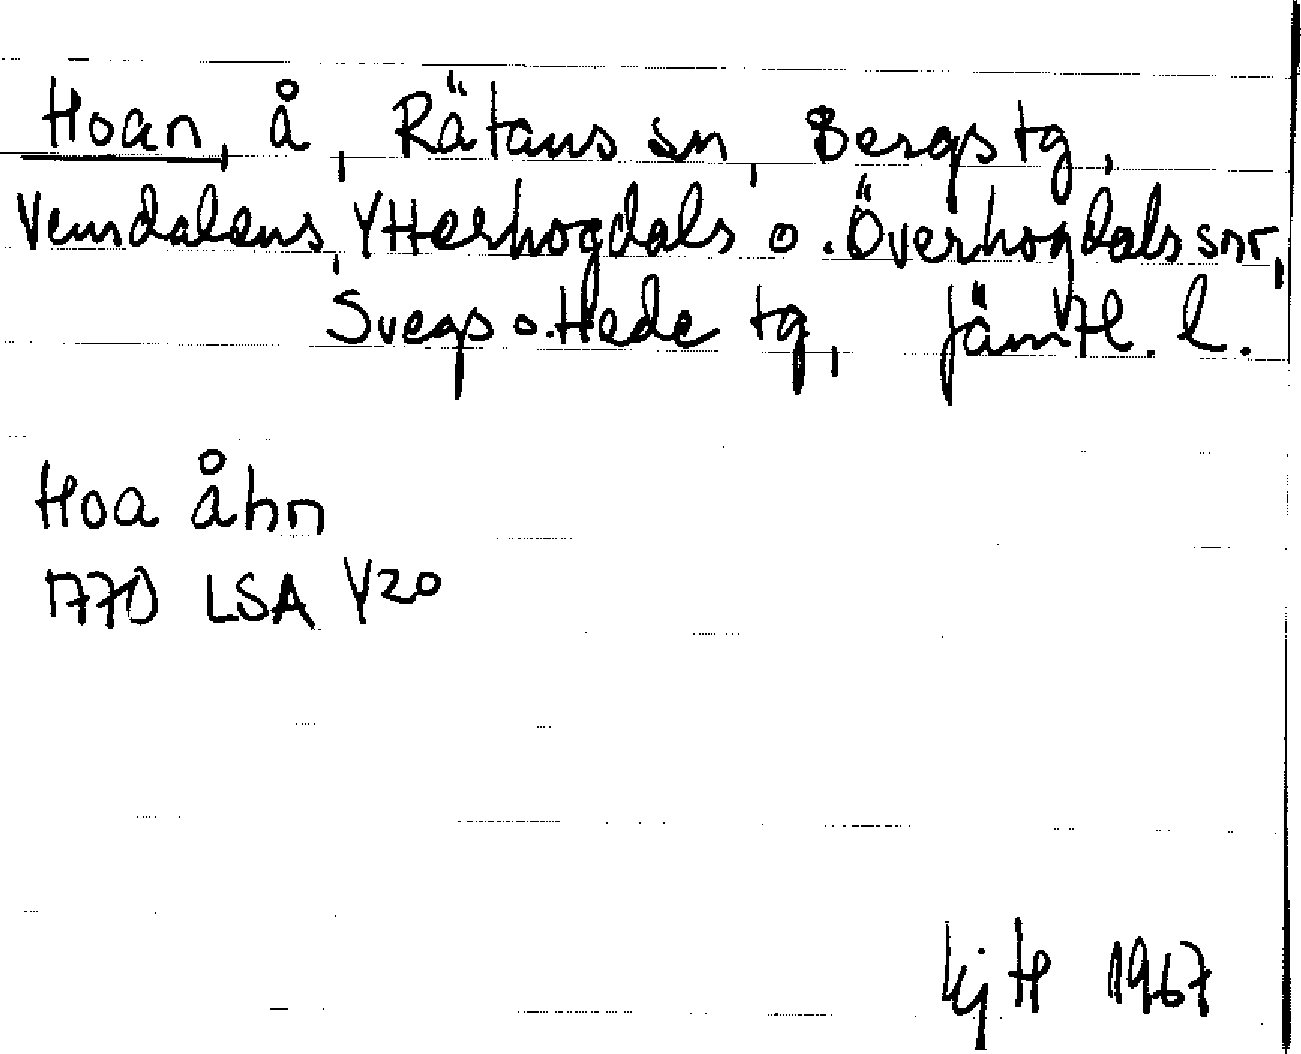 Hoan, å, Rätans sn, Bergs tg,
Vemdalens, Ytterhogdals o. Överhogdals snr,
Svegs o. Hede tg, Jämtl. l.
Hoa åhn
1770 LSA Y20
Kj H 1967